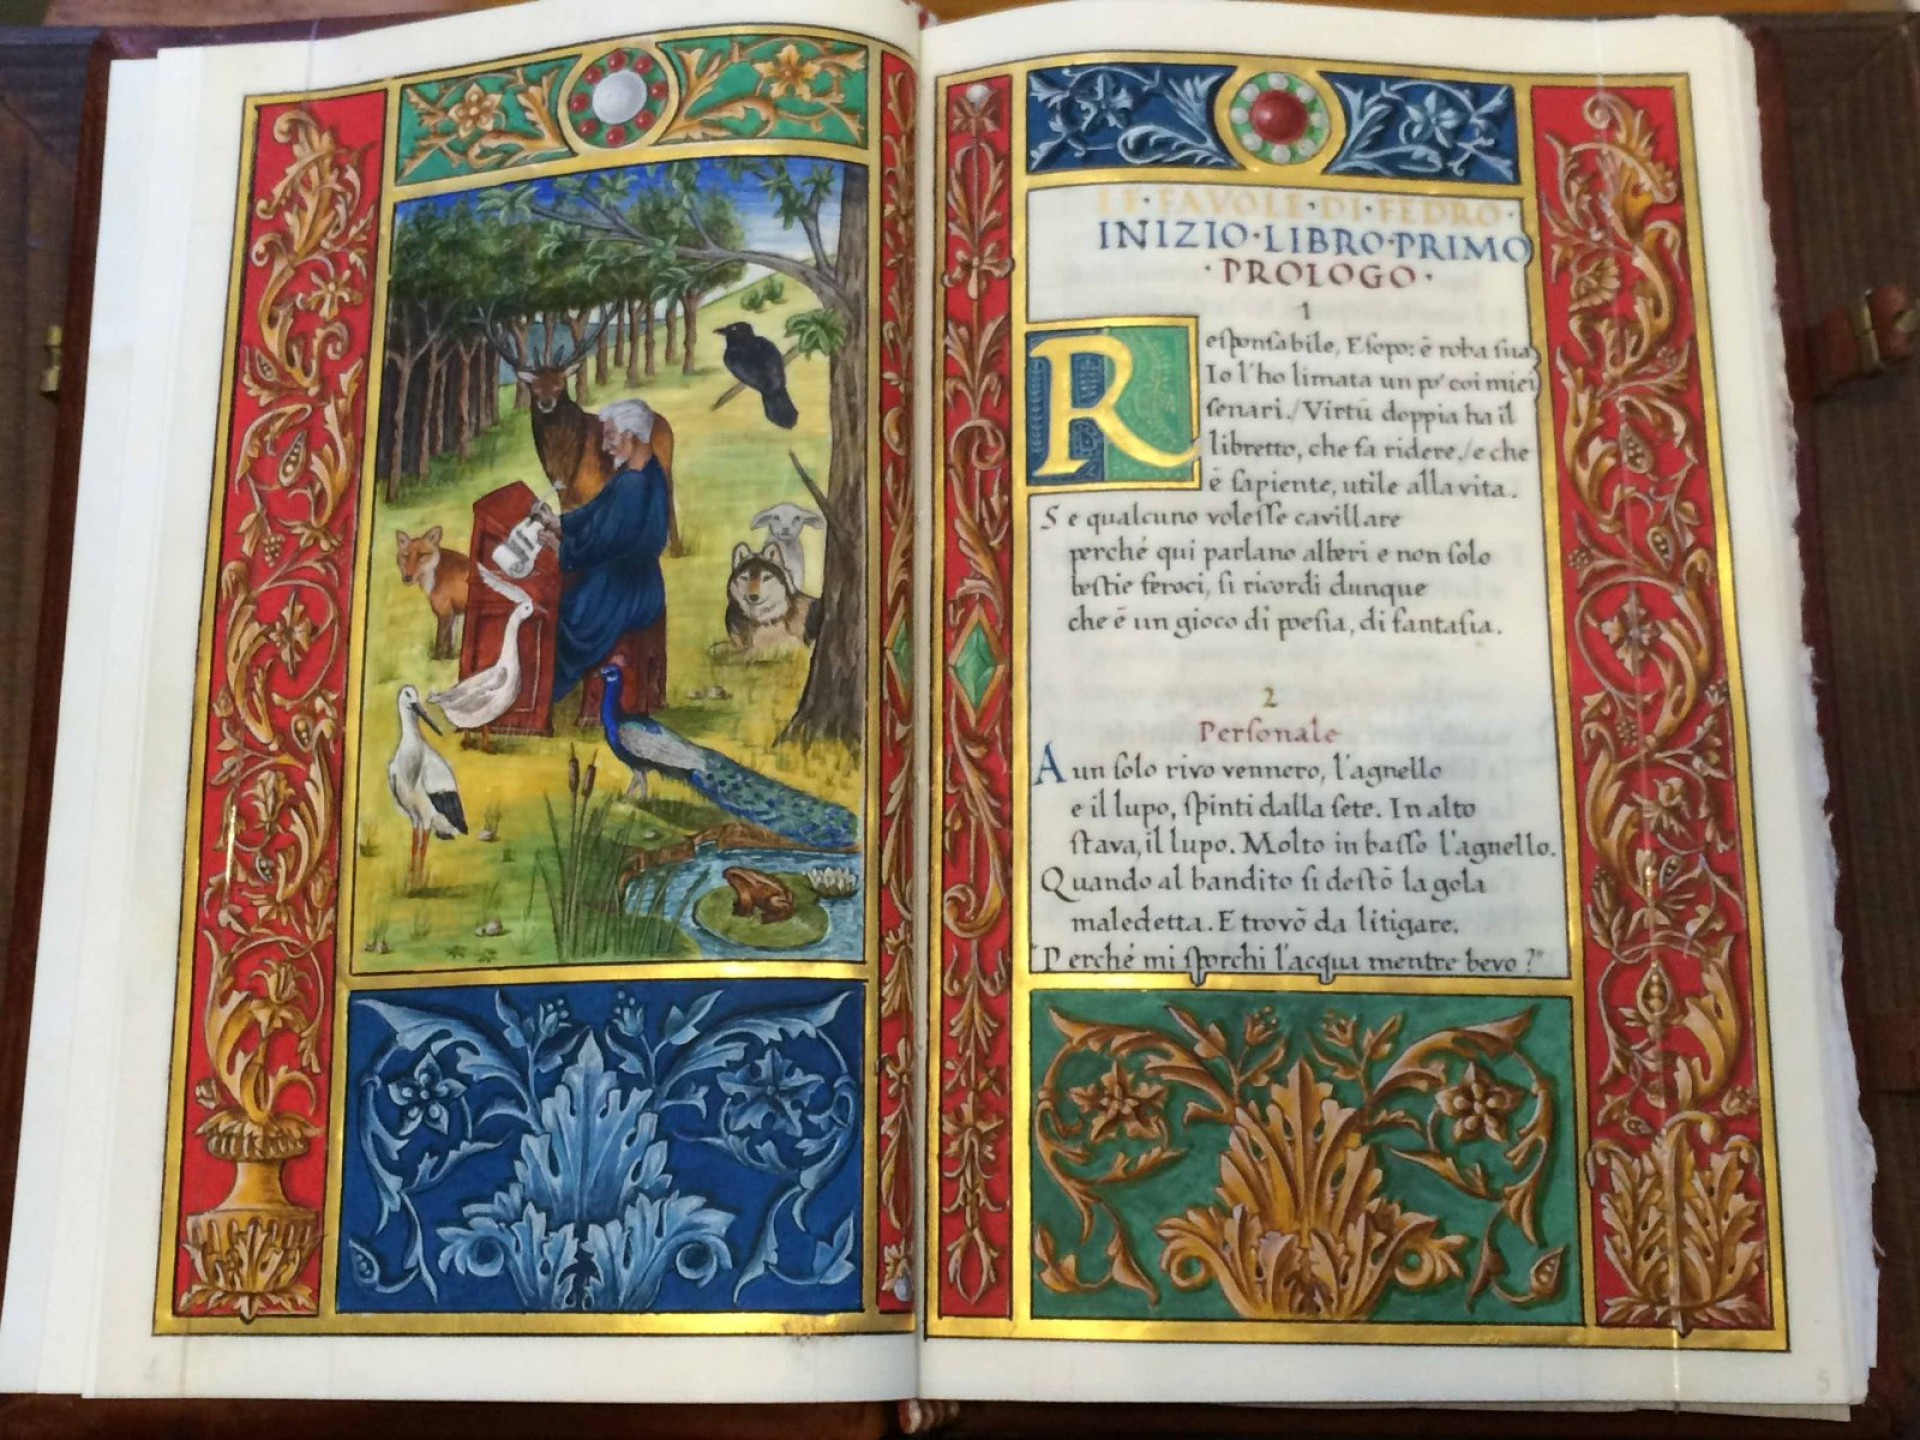 LE·FAVOLE·DI·FEDRO·
INIZIO·LIBRO·PRIMO
·PROLOGO·
1
Reſponſabile, Eſopo: è roba ſua
Io l'ho limata un po' coi miei
ſenari./Virtù doppia ha il
libretto, che fa ridere,/e che
è ſapiente, utile alla vita.
Se qualcuno voleſſe cavillare
perché qui parlano alberi e non ſolo
beſtie feroci, ſi ricordi dunque
che è un gioco di poeſia, di fantaſia.
2
Perſonale
A un ſolo rivo vennero, l'agnello
e il lupo, ſpinti dalla ſete. In alto
ſtava, il lupo. Molto in baſſo l'agnello.
Quando al bandito ſi deſtò la gola
maledetta. E trovò da litigare.
"Perché mi ſporchi l'acqua mentre bevo?"
5